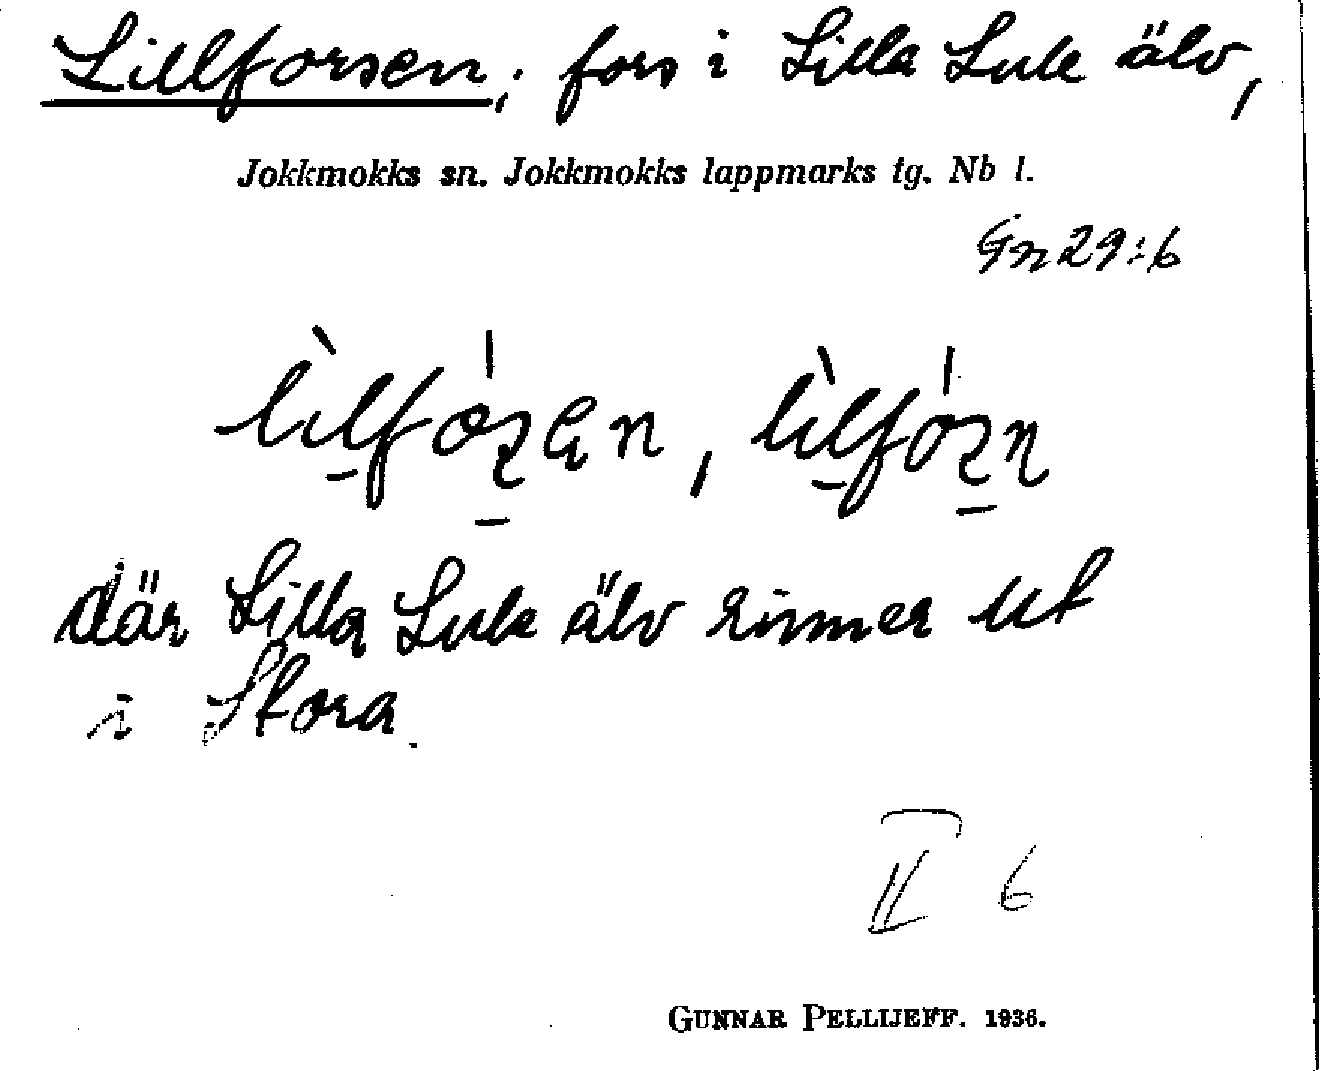 Lillforsen; fors i Lilla Lule älv,
Jokkmokks sn. Jokkmokks lappmarks tg. Nb l.
Gn 29:6
där Lilla Lule älv rinner ut
i Stora.
II 6
GUNNAR PELLIJEFF. 1936.